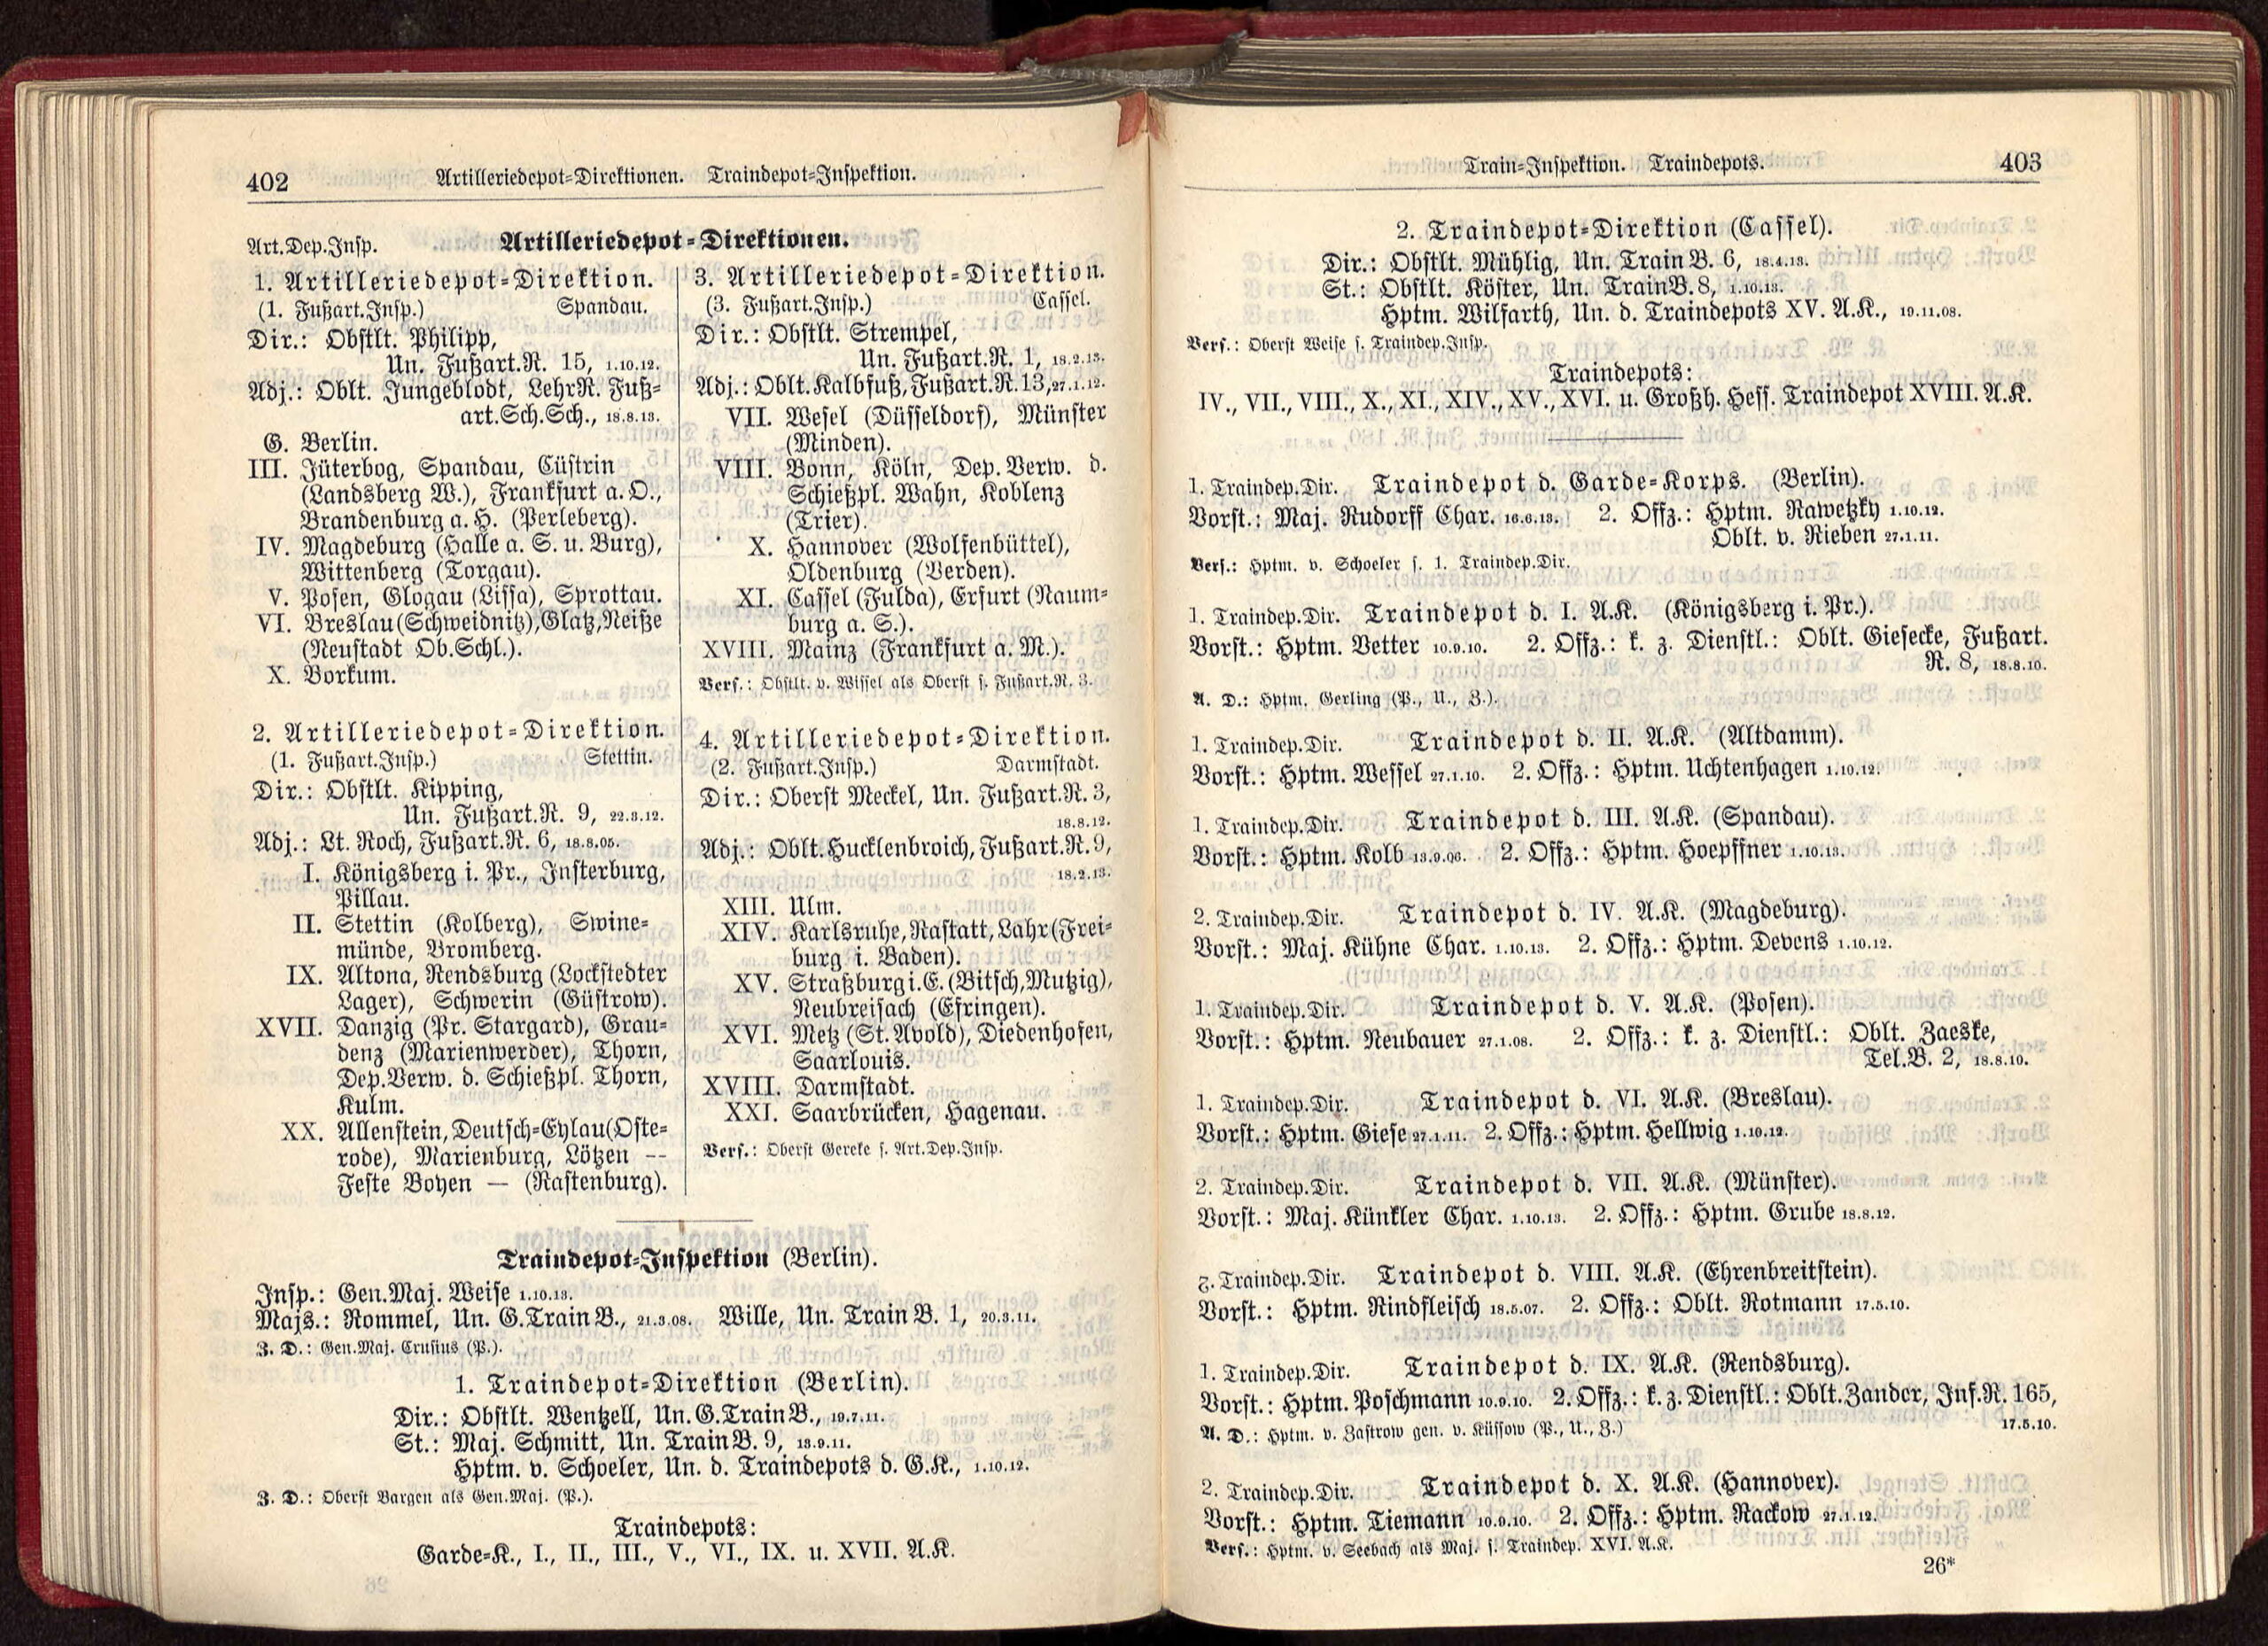 402
Artilleriedepot-Direktionen. Traindepot-Inspektion.
Art.Dep.Insp. Artilleriedepot-Direktionen.
1. Artilleriedepot-Direktion.
(1. Fußart.Insp.) Spandau.
Dir.: Obstlt. Philipp,
Un. Fußart.R. 15, 1.10.12.
Adj.: Oblt. Jungeblodt, LehrR. Fuß-
art.Sch.Sch., 18.8.13.
G. Berlin.
III. Jüterbog, Spandau, Cüstrin
(Landsberg W.), Frankfurt a. O.,
Brandenburg a. H. (Perleberg).
IV. Magdeburg (Halle a. S. u. Burg),
Wittenberg (Torgau).
V. Posen, Glogau (Lissa), Sprottau.
VI. Breslau (Schweidnitz), Glatz, Neiße
(Neustadt Ob.Schl.).
X. Borkum.
2. Artilleriedepot-Direktion.
(1. Fußart.Insp.) Stettin.
Dir.: Obstlt. Kipping,
Un. Fußart.R. 9, 22.3.12.
Adj.: Lt. Roch, Fußart.R. 6, 18.8.05.
I. Königsberg i. Pr., Insterburg,
Pillau.
II. Stettin (Kolberg), Swine-
münde, Bromberg.
IX. Altona, Rendsburg (Lockstedter
Lager), Schwerin (Güstrow).
XVII. Danzig (Pr. Stargard), Grau-
denz (Marienwerder), Thorn,
Dep.Verw. d. Schießpl. Thorn,
Kulm.
XX. Allenstein, Deutsch-Eylau (Oste-
rode), Marienburg, Lötzen —
Feste Boyen — (Rastenburg).
3. Artilleriedepot-Direktion.
(3. Fußart.Insp.) Cassel.
Dir.: Obstlt. Strempel,
Un. Fußart.R. 1, 18.2.13.
Adj.: Oblt. Kalbfuß, Fußart.R. 13, 27.1.12.
VII. Wesel (Düsseldorf), Münster
(Minden).
VIII. Bonn, Köln, Dep. Verw. d.
Schießpl. Wahn, Koblenz
(Trier).
X. Hannover (Wolfenbüttel),
Oldenburg (Verden).
XI. Cassel (Fulda), Erfurt (Naum-
burg a. S.).
XVIII. Mainz (Frankfurt a. M.).
Vers.: Obstlt. v. Wissel als Oberst s. Fußart.R. 3.
4. Artilleriedepot-Direktion.
(2. Fußart.Insp.) Darmstadt.
Dir.: Oberst Meckel, Un. Fußart.R. 3,
18.8.12.
Adj.: Oblt. Hucklenbroich, Fußart.R. 9,
18.2.13.
XIII. Ulm.
XIV. Karlsruhe, Rastatt, Lahr (Frei-
burg i. Baden).
XV. Straßburg i. E. (Bitsch, Mutzig),
Neubreisach (Efringen).
XVI. Metz (St. Avold), Diedenhofen,
Saarlouis.
XVIII. Darmstadt.
XXI. Saarbrücken, Hagenau.
Vers.: Oberst Gereke s. Art.Dep.Insp.
Traindepot-Inspektion (Berlin).
Insp.: Gen.Maj. Weise 1.10.13.
Majs.: Rommel, Un. G.Train B., 21.3.08. Wille, Un. Train B. 1, 20.3.11.
Z. D.: Gen.Maj. Crusius (P.).
1. Traindepot-Direktion (Berlin).
Dir.: Obstlt. Wentzell, Un. G.Train B., 19.7.11.
St.: Maj. Schmitt, Un. Train B. 9, 13.9.11.
Hptm. v. Schoeler, Un. d. Traindepots d. G.K., 1.10.12.
Z. D.: Oberst Bargen als Gen.Maj. (P.).
Traindepots:
Garde-K., I., II., III., V., VI., IX. u. XVII. A.K.
Train-Inspektion. Traindepots.
403
2. Traindepot-Direktion (Cassel).
Dir.: Obstlt. Mühlig, Un. Train B. 6, 18.4.13.
St.: Obstlt. Köster, Un. Train B. 8, 1.10.13.
Hptm. Wilfarth, Un. d. Traindepots XV. A.K., 19.11.08.
Vers.: Oberst Weise s. Traindep.Insp.
Traindepots:
IV., VII., VIII., X., XI., XIV., XV., XVI. u. Großh. Hess. Traindepot XVIII. A.K.
1. Traindep.Dir. Traindepot d. Garde-Korps. (Berlin).
Vorst.: Maj. Rudorff Char. 16.6.13. 2. Offz.: Hptm. Rawetzky 1.10.12.
Oblt. v. Rieben 27.1.11.
Vers.: Hptm. v. Schoeler s. 1. Traindep.Dir.
1. Traindep.Dir. Traindepot d. I. A.K. (Königsberg i. Pr.).
Vorst.: Hptm. Vetter 10.9.10. 2. Offz.: k. z. Dienstl.: Oblt. Giesecke, Fußart.
R. 8, 18.8.10.
A. D.: Hptm. Gerling (P., U., Z.).
1. Traindep.Dir. Traindepot d. II. A.K. (Altdamm).
Vorst.: Hptm. Wessel 27.1.10. 2. Offz.: Hptm. Uchtenhagen 1.10.12.
1. Traindep.Dir. Traindepot d. III. A.K. (Spandau).
Vorst.: Hptm. Kolb 13.9.06. 2. Offz.: Hptm. Hoepffner 1.10.13.
2. Traindep.Dir. Traindepot d. IV. A.K. (Magdeburg).
Vorst.: Maj. Kühne Char. 1.10.13. 2. Offz.: Hptm. Devens 1.10.12.
1. Traindep.Dir. Traindepot d. V. A.K. (Posen).
Vorst.: Hptm. Neubauer 27.1.08. 2. Offz.: k. z. Dienstl.: Oblt. Zaeske,
Tel.B. 2, 18.8.10.
1. Traindep.Dir. Traindepot d. VI. A.K. (Breslau).
Vorst.: Hptm. Giese 27.1.11. 2. Offz.: Hptm. Hellwig 1.10.12.
2. Traindep.Dir. Traindepot d. VII. A.K. (Münster).
Vorst.: Maj. Künkler Char. 1.10.13. 2. Offz.: Hptm. Grube 18.8.12.
2. Traindep.Dir. Traindepot d. VIII. A.K. (Ehrenbreitstein).
Vorst.: Hptm. Rindfleisch 18.5.07. 2. Offz.: Oblt. Rotmann 17.5.10.
1. Traindep.Dir. Traindepot d. IX. A.K. (Rendsburg).
Vorst.: Hptm. Poschmann 10.9.10. 2. Offz.: k. z. Dienstl.: Oblt. Zander, Inf.R. 165,
17.5.10.
A. D.: Hptm. v. Zastrow gen. v. Küssow (P., U., Z.)
2. Traindep.Dir. Traindepot d. X. A.K. (Hannover).
Vorst.: Hptm. Tiemann 10.9.10. 2. Offz.: Hptm. Rackow 27.1.12.
Vers.: Hptm. v. Seebach als Maj. s. Traindep. XVI. A.K.
26*